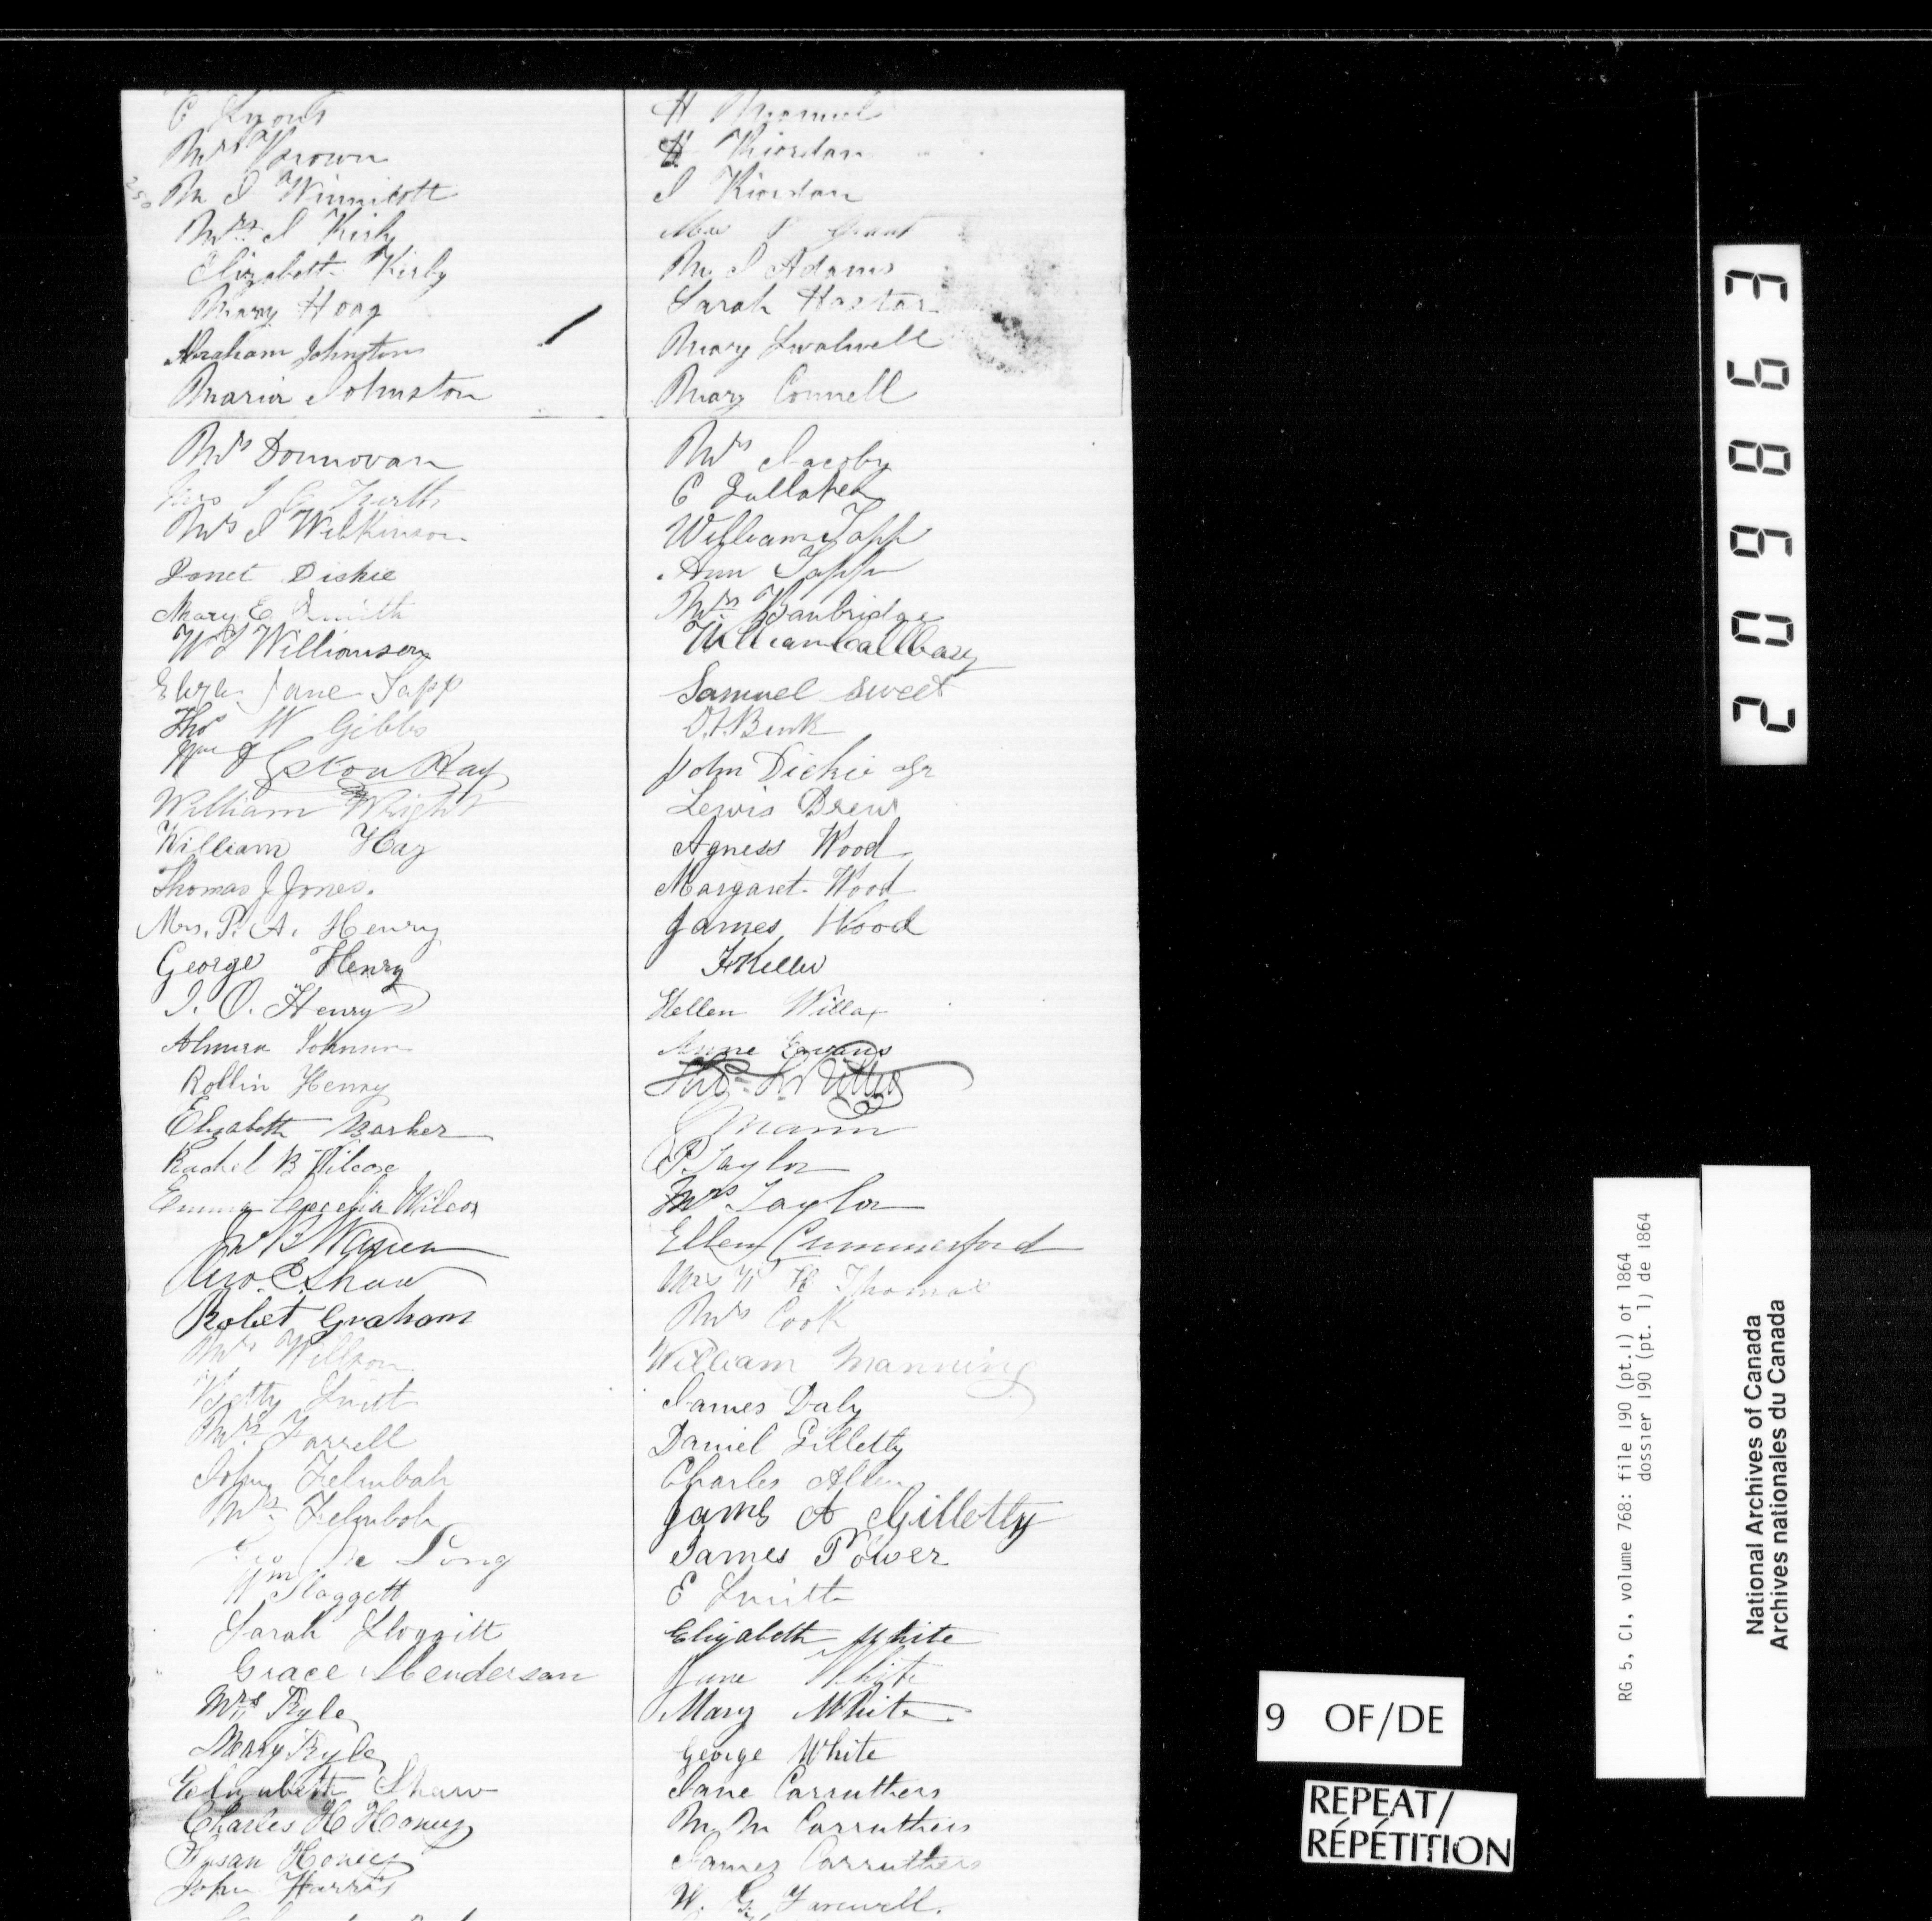 C Lyons
Mrs Brown
250 M J Winnicott
Mrs J Kirby
Elizabeth Kirby
Mary Hoag
Abraham Johnston
Maria Johnston
Mrs Donnovan
Mrs J C
Mrs J Wilkinson
Janet Dickie
Mary E Smith
W J Williamson
Eliza Jane Sapp
Thos W Gibbs
Wm Hay
William Wright
William Hay
Thomas J Jones.
Mrs. P. A. Henry
George Henry
J. O. Henry
Almira Johnson
Rollin Henry
Elizabeth Barker
Rachel B Wilcox
Emma Cecelia Wilcox
W B Warren
Geo. C. Shaw
Robet Graham
Mrs Willson
Betty Smith
Mrs Farrell
John
Mrs
Long
Wm Sloggett
Sarah Sloggitt
Grace Henderson
Mrs Pyle
Mary Pyle
Elizabeth Shaw
Charles H Honey
Susan Honey
John Harris
H
H Riordan
J Riordan
Mrs P Grant
M J Adams
Sarah Hastar
Mary Swalwell
Mary Connell
Mrs Jacoby
C Gullaher
William Tapp
Ann Tapp
Mrs Banbridge
William Callbary
Samuel Sweet
D. F. Burk
John Dickie Jr
Lewis Drew
Agness Wood
Margaret Wood
James Wood
F Keller
Hellen Willox
Anne Ewans
Thos
Mann
P. Taylor
Mrs Taylor
Ellen Cummerford
Mrs W H Thomas
Mrs Cook
William Manning
James Daly
Daniel Gilletly
Charles Allen
James A Gilletly
James Power
E Smith
Elizabeth White
Jane White
Mary White
George White
Jane Carruthers
M. M Carruthers
James Carruthers
W. G. Farewell.
209863
RG 5, C1, volume 768: file 190 (pt.1) of 1864
dossier 190 (pt. 1) de 1864
National Archives of Canada
Archives nationales du Canada
9 OF/DE
REPEAT/
RÉPÉTITION